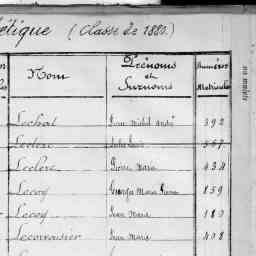 étique (Classe de 1880.)
Nom Prénoms et Surnoms Numéros Matricules
Lechat Pierre Michel André 392
Leclerc Jules Louis 567
Leclerc Pierre Marie 434
Lecoq Georges Marie Pierre 859
Lecoq Jean Marie 180
Lecorvaisier Jean Marie 408